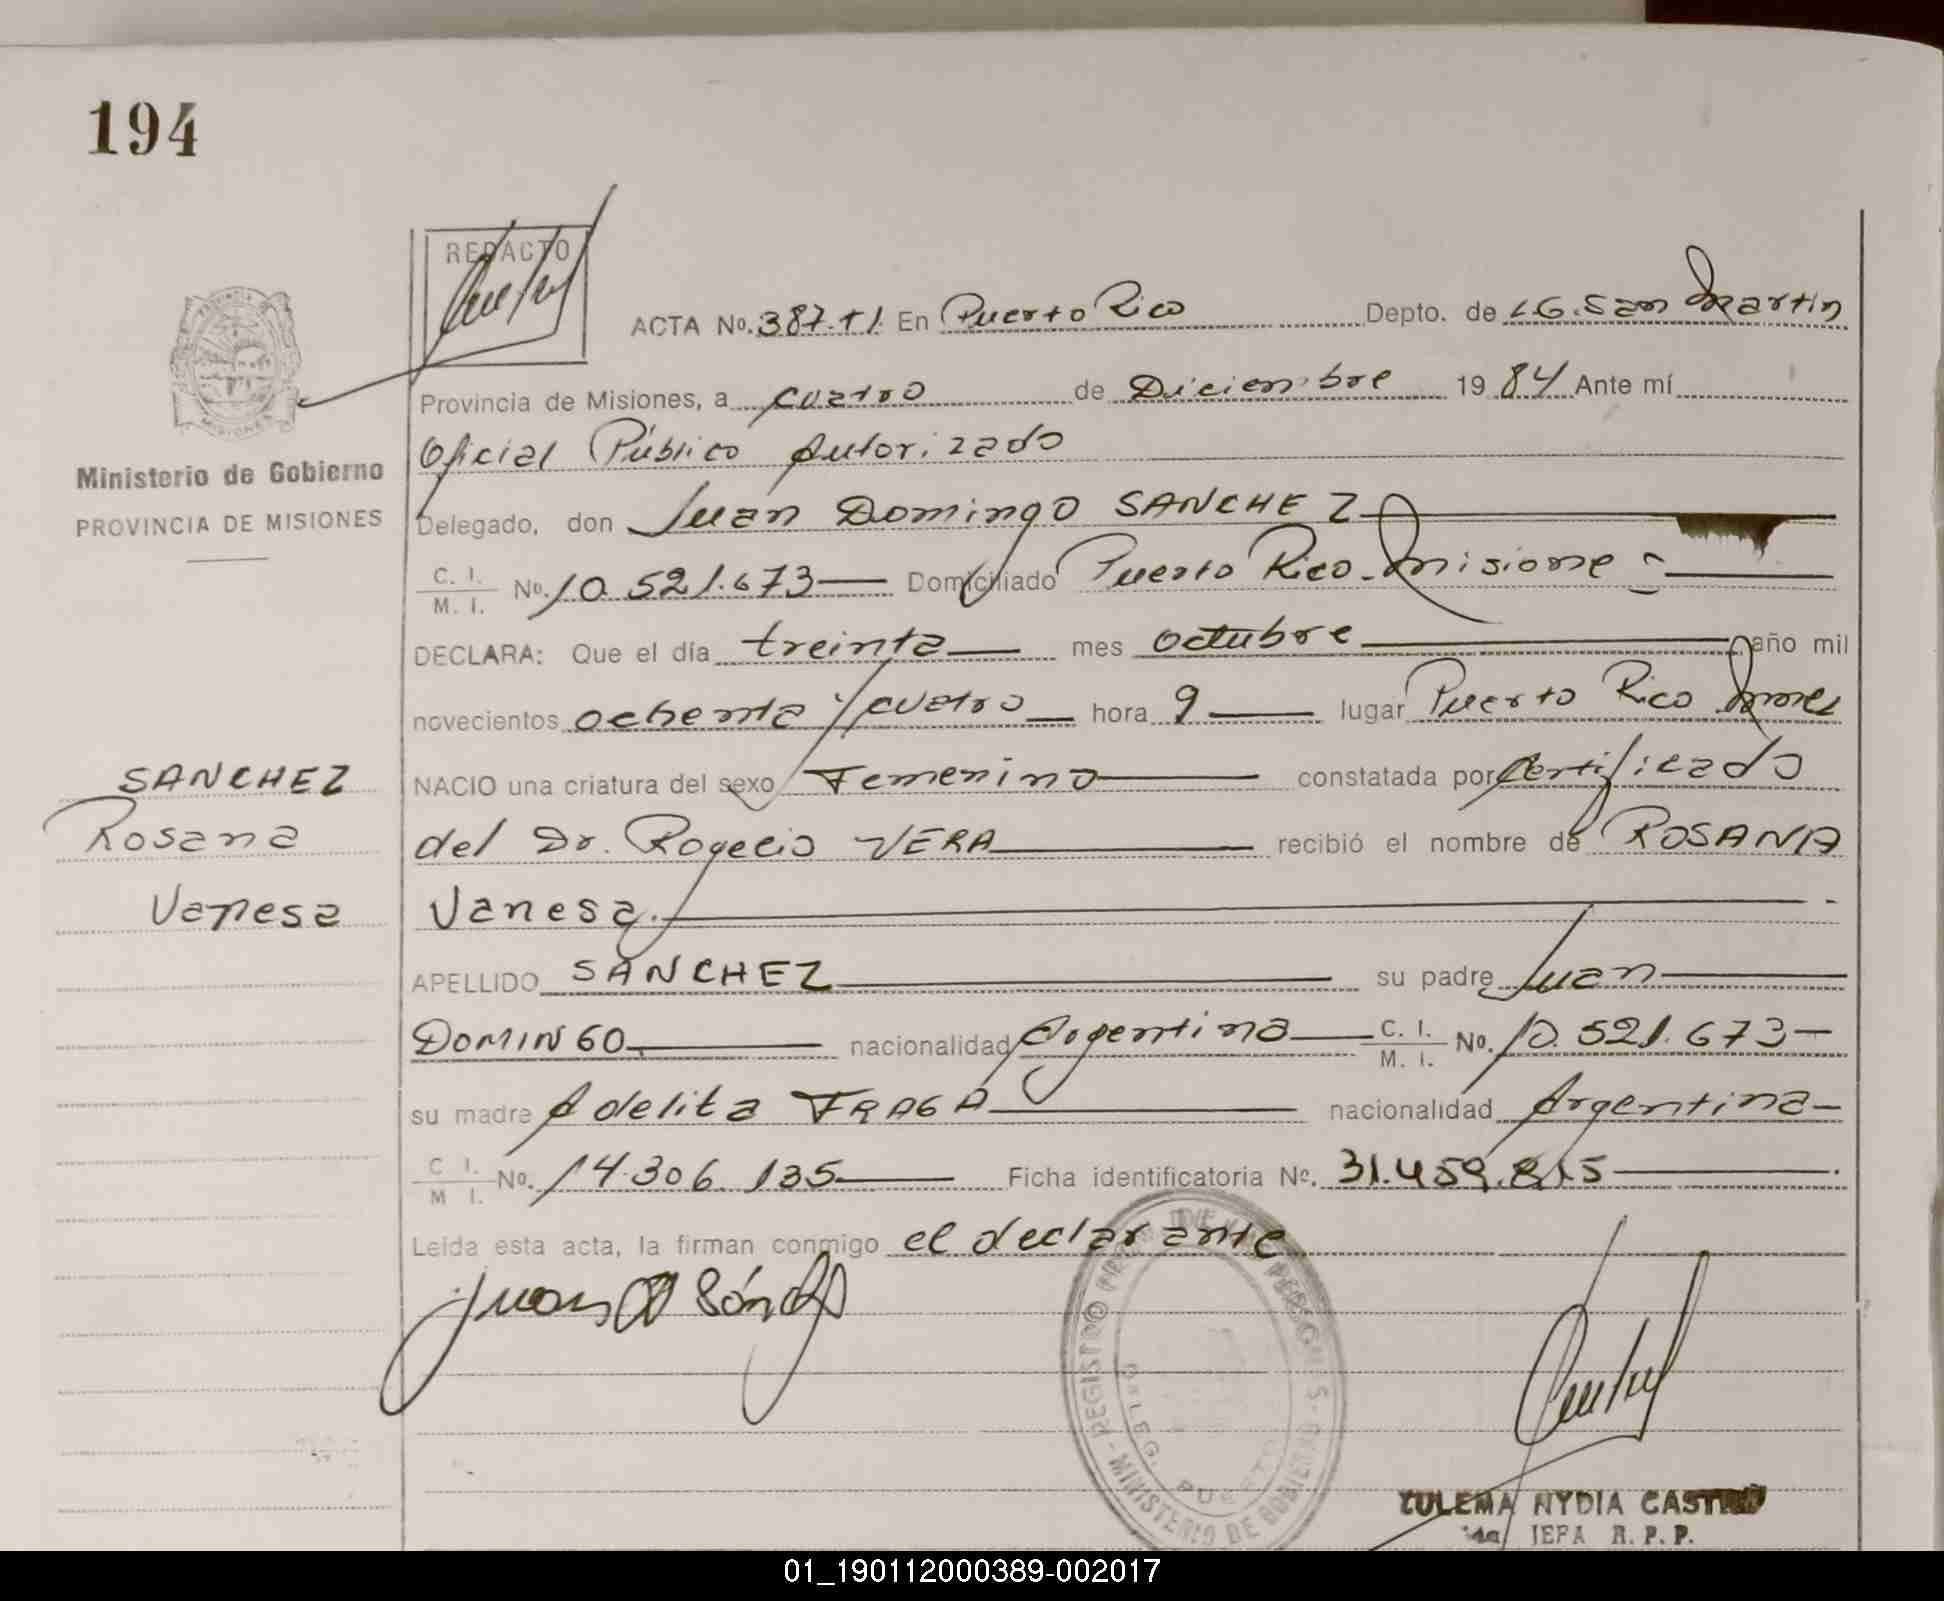 194
REDACTO
ACTA No. 387-TI En Puerto Rico Depto. de L.G. San Martin
Provincia de Misiones, a cuatro de Diciembre 1984 Ante mí
Oficial Público Autorizado
Ministerio de Gobierno
PROVINCIA DE MISIONES
Delegado, don Juan Domingo SANCHEZ
C. I. M. I. No. 10.521.673 Domiciliado Puerto Rico-Misiones
DECLARA: Que el día treinta mes octubre año mil
novecientos ochenta y cuatro hora 9 lugar Puerto Rico Mnes
SANCHEZ
Rosana
Vanesa
NACIO una criatura del sexo Femenino constatada por Certificado
del Dr. Rogelio VERA recibió el nombre de ROSANA
Vanesa.
APELLIDO SANCHEZ su padre Juan
DOMINGO nacionalidad Argentina C. I. M. I. No. 10.521.673
su madre Adelita FRAGA nacionalidad Argentina
C. I. M. I. No. 14.306.135 Ficha identificatoria No. 31.459.815
Leída esta acta, la firman conmigo el declarante
Juan D Sánchez
REGISTRO PROV. DE LAS PERSONAS - MINISTERIO DE GOBIERNO
DELEG. PUERTO
ZULEMA NYDIA CASTRO
JEFA R. P. P.
01_190112000389-002017